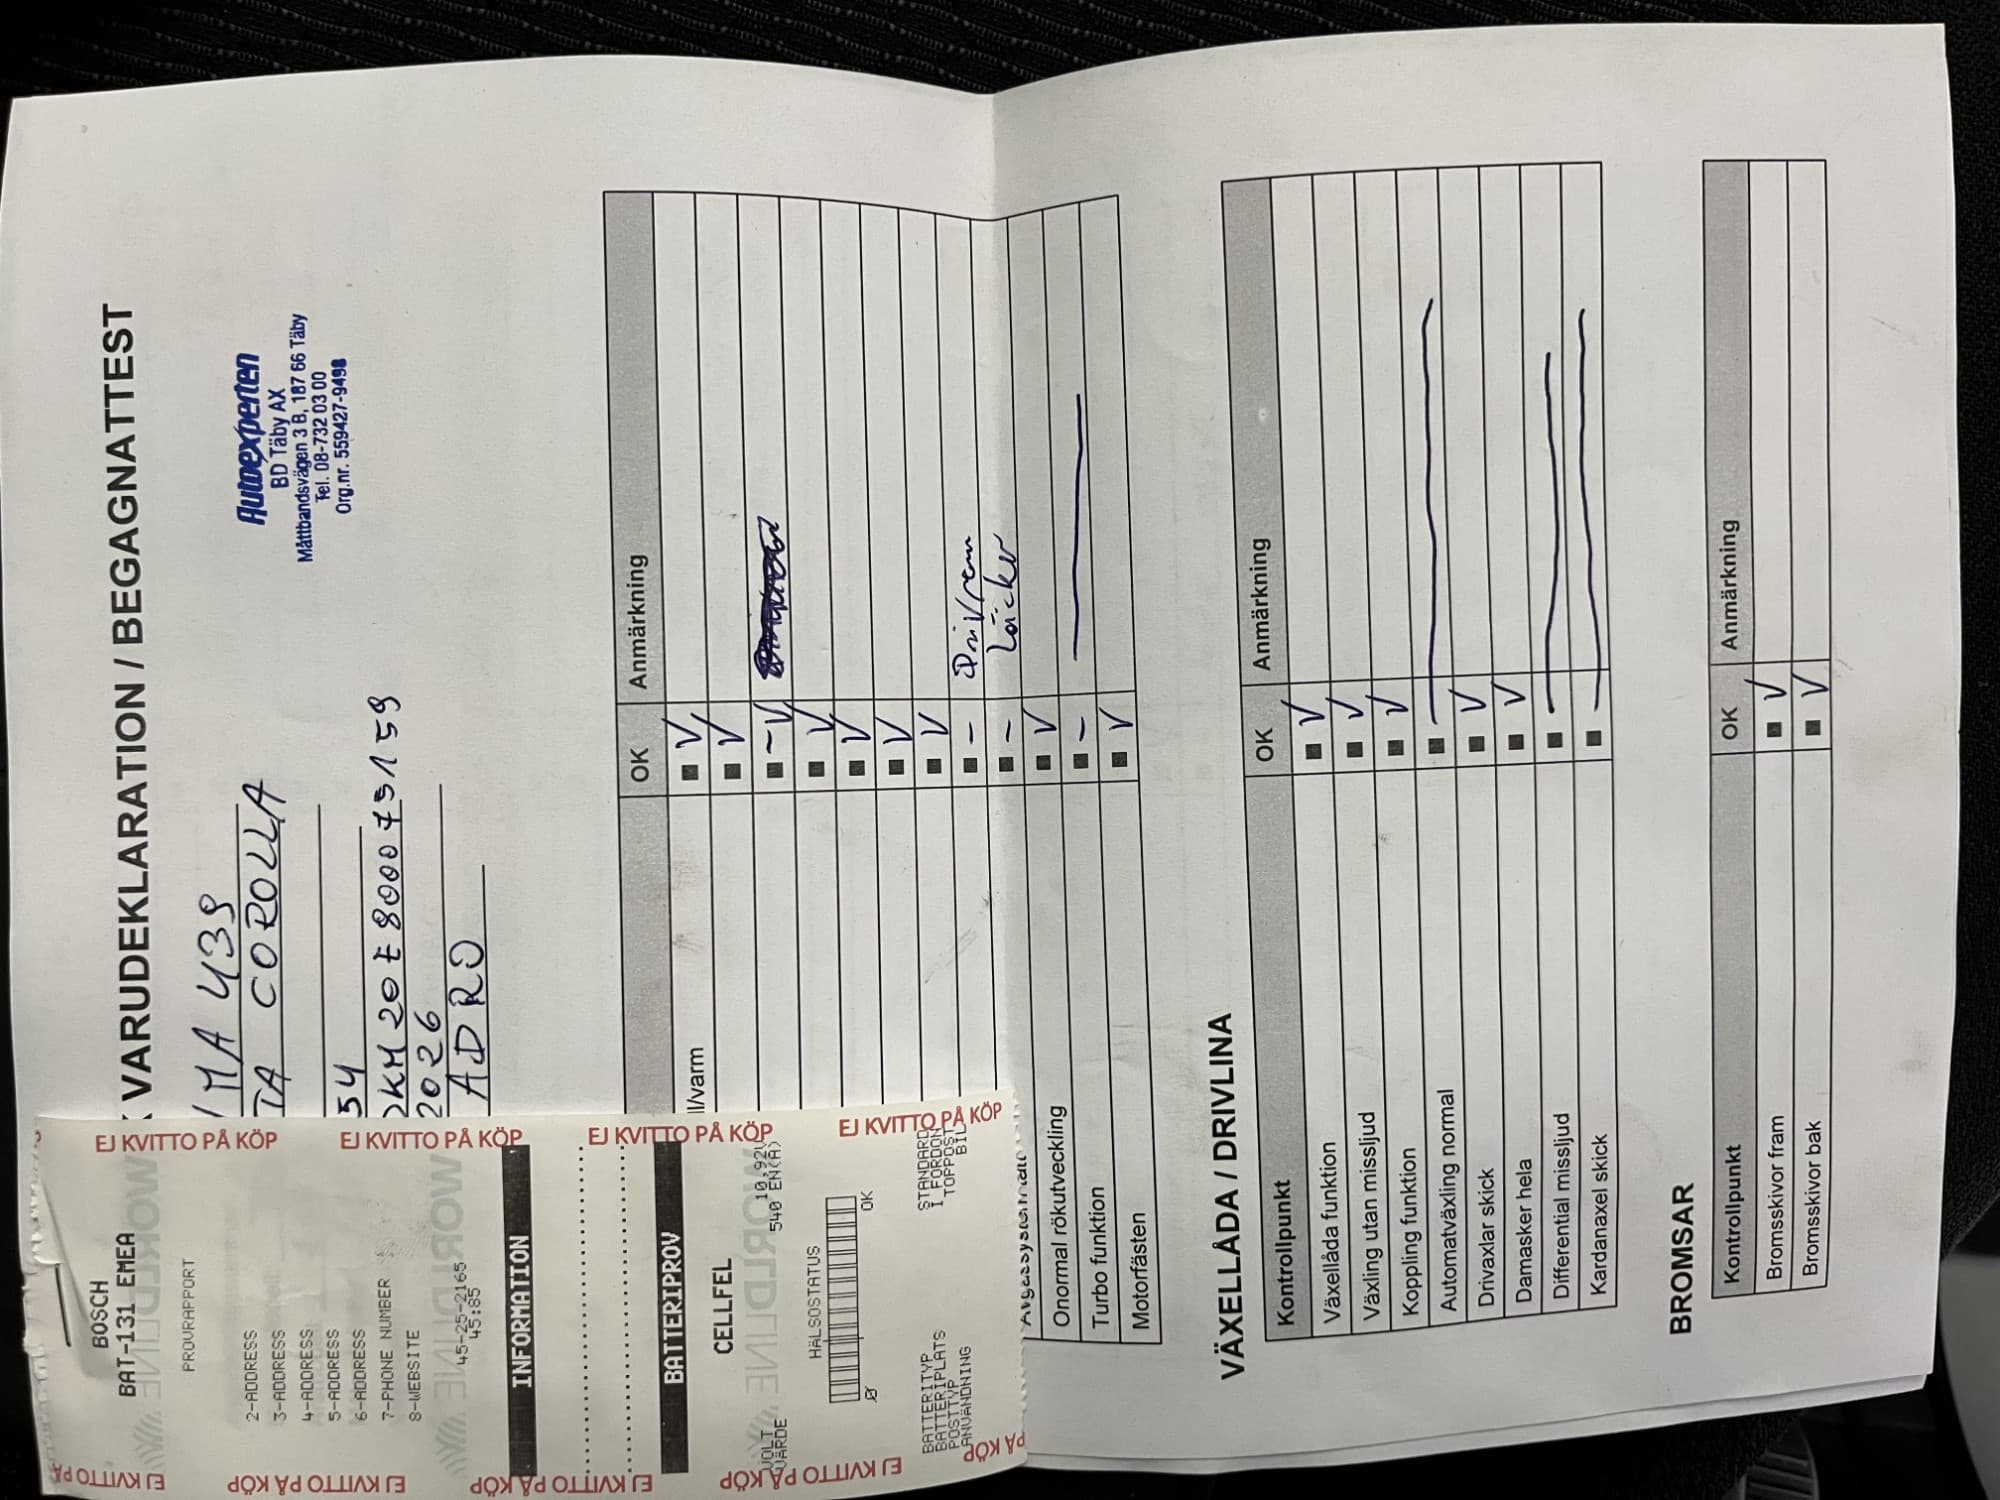 VARUDEKLARATION / BEGAGNATTEST
Autoexperten
BD Täby AX
Måttbandsvägen 3 B, 187 66 Täby
Tel. 08-732 03 00
Org.nr. 559427-9498
MA 439
TA COROLLA
54
KM20E800075159
2026
ADRO
OK Anmärkning
ll/varm
Drivrem
Läcker
Onormal rökutveckling
Turbo funktion
Motorfästen
VÄXELLÅDA / DRIVLINA
Kontrollpunkt OK Anmärkning
Växellåda funktion
Växling utan missljud
Koppling funktion
Automatväxling normal
Drivaxlar skick
Damasker hela
Differential missljud
Kardanaxel skick
BROMSAR
Kontrollpunkt OK Anmärkning
Bromsskivor fram
Bromsskivor bak
BOSCH
BAT-131 EMEA
PROVRAPPORT
2-ADDRESS
3-ADDRESS
4-ADDRESS
5-ADDRESS
6-ADDRESS
7-PHONE NUMBER
8-WEBSITE
45-25-2165
45:85
INFORMATION
BATTERIPROV
CELLFEL
VOLT 10,92V
VÄRDE 540 EN(A)
HÄLSOSTATUS
OK
BATTERITYP STANDARD
BATTERIPLATS I FORDON
POSTTYP TOPPOST
ANVÄNDNING BIL
EJ KVITTO PÅ KÖP
EJ KVITTO PÅ KÖP
EJ KVITTO PÅ KÖP
EJ KVITTO PÅ KÖP
EJ KVITTO PÅ
EJ KVITTO PÅ KÖP
EJ KVITTO PÅ KÖP
EJ KVITTO PÅ KÖP
PÅ KÖP
WORLDLINE